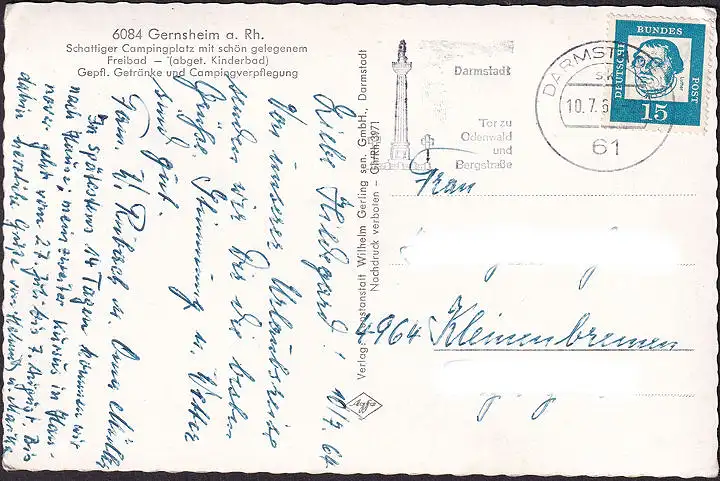 6084 Gernsheim a. Rh.
Schattiger Campingplatz mit schön gelegenem
Freibad — (abget. Kinderbad)
Gepfl. Getränke und Campingverpflegung
Verlag Kunstanstalt Wilhelm Gerling sen. GmbH., Darmstadt
Nachdruck verboten – Gh/Rh 3971
Agfa
Darmstadt
Tor zu
Odenwald
und
Bergstraße
DARMST
10.7.6
61
DEUTSCHE
BUNDES
POST
15
Frau
4964 Kleinenbremen
10/7. 64.
Liebe Hildegard!
Von unserer Urlaubsreise
senden wir Dir die besten
Grüße. Stimmung u. Wetter
sind gut.
Fam. u. Anna Müller
In spätestens 14 Tagen kommen wir
nach Hause, mein zweiter Kursus in Han-
nover geht vom 27. Juli bis 7. August. Bis
dahin herzliche Grüße von